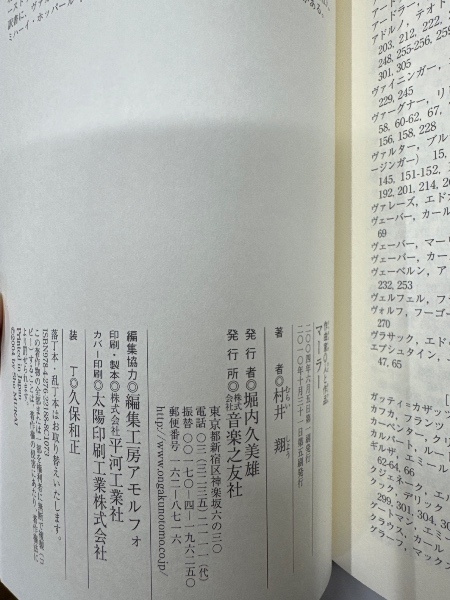 作曲家◎人と作品
マーラー
二〇〇四年六月五日第一刷発行
二〇一〇年十月三十一日第五刷発行
著者◎村井 翔
むらい しょう
発行者◎堀内久美雄
発行所◎株式会社音楽之友社
東京都新宿区神楽坂六の三〇
電話〇三(三二三五)二一一一(代)
振替〇〇一七〇-四-一九六二五〇
郵便番号一六二-八七一六
http://www.ongakunotomo.co.jp/
編集協力◎編集工房アモルフォ
印刷・製本◎株式会社平河工業社
カバー印刷◎太陽印刷工業株式会社
装丁◎久保和正
落丁本・乱丁本はお取り替えいたします。
Printed in Japan
ミハーイ・ホッパール
アドルノ, テオド
203, 212, 222,
248, 255-256, 259
301, 305
ヴァイニンガー,
229, 245
ヴァーグナー, リ
58, 60-62, 67,
156, 158, 228
ヴァルター, ブル
ージンガー) 15,
145, 151-152,
192, 201, 214, 2
ヴァレーズ, エド
ヴェーバー, カール
69
ヴェーバー, マーリ
ヴェーバー, カー
ヴェーベルン, ア
232, 253
ヴェルフェル, フ
ヴォルフ, フーゴー
270
ヴラサック, エド
エプシュタイン,
47, 65
ガッティ=カザッツ
カフカ, フランツ
カーペンター, ク
カルパート, ルート
ギルザ, エミール
62-64, 66
クジェネーク, エル
クック, デリック
299, 301, 304, 30
グートマン, エミー
クラウス, カール
グラーフ, マックス